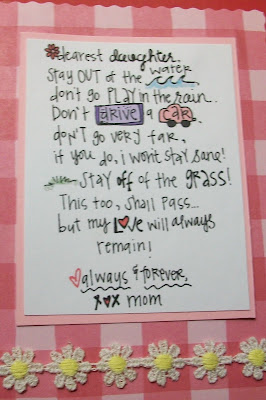 dearest daughter.
Stay OUT of the water,
don't go PLAY in the rain.
Don't drive a car,
don't go very far,
if you do, i won't stay sane!
Stay off of the grass!
This too, shall pass...
but my LOVE will always
remain!
always & forever,
xox mom